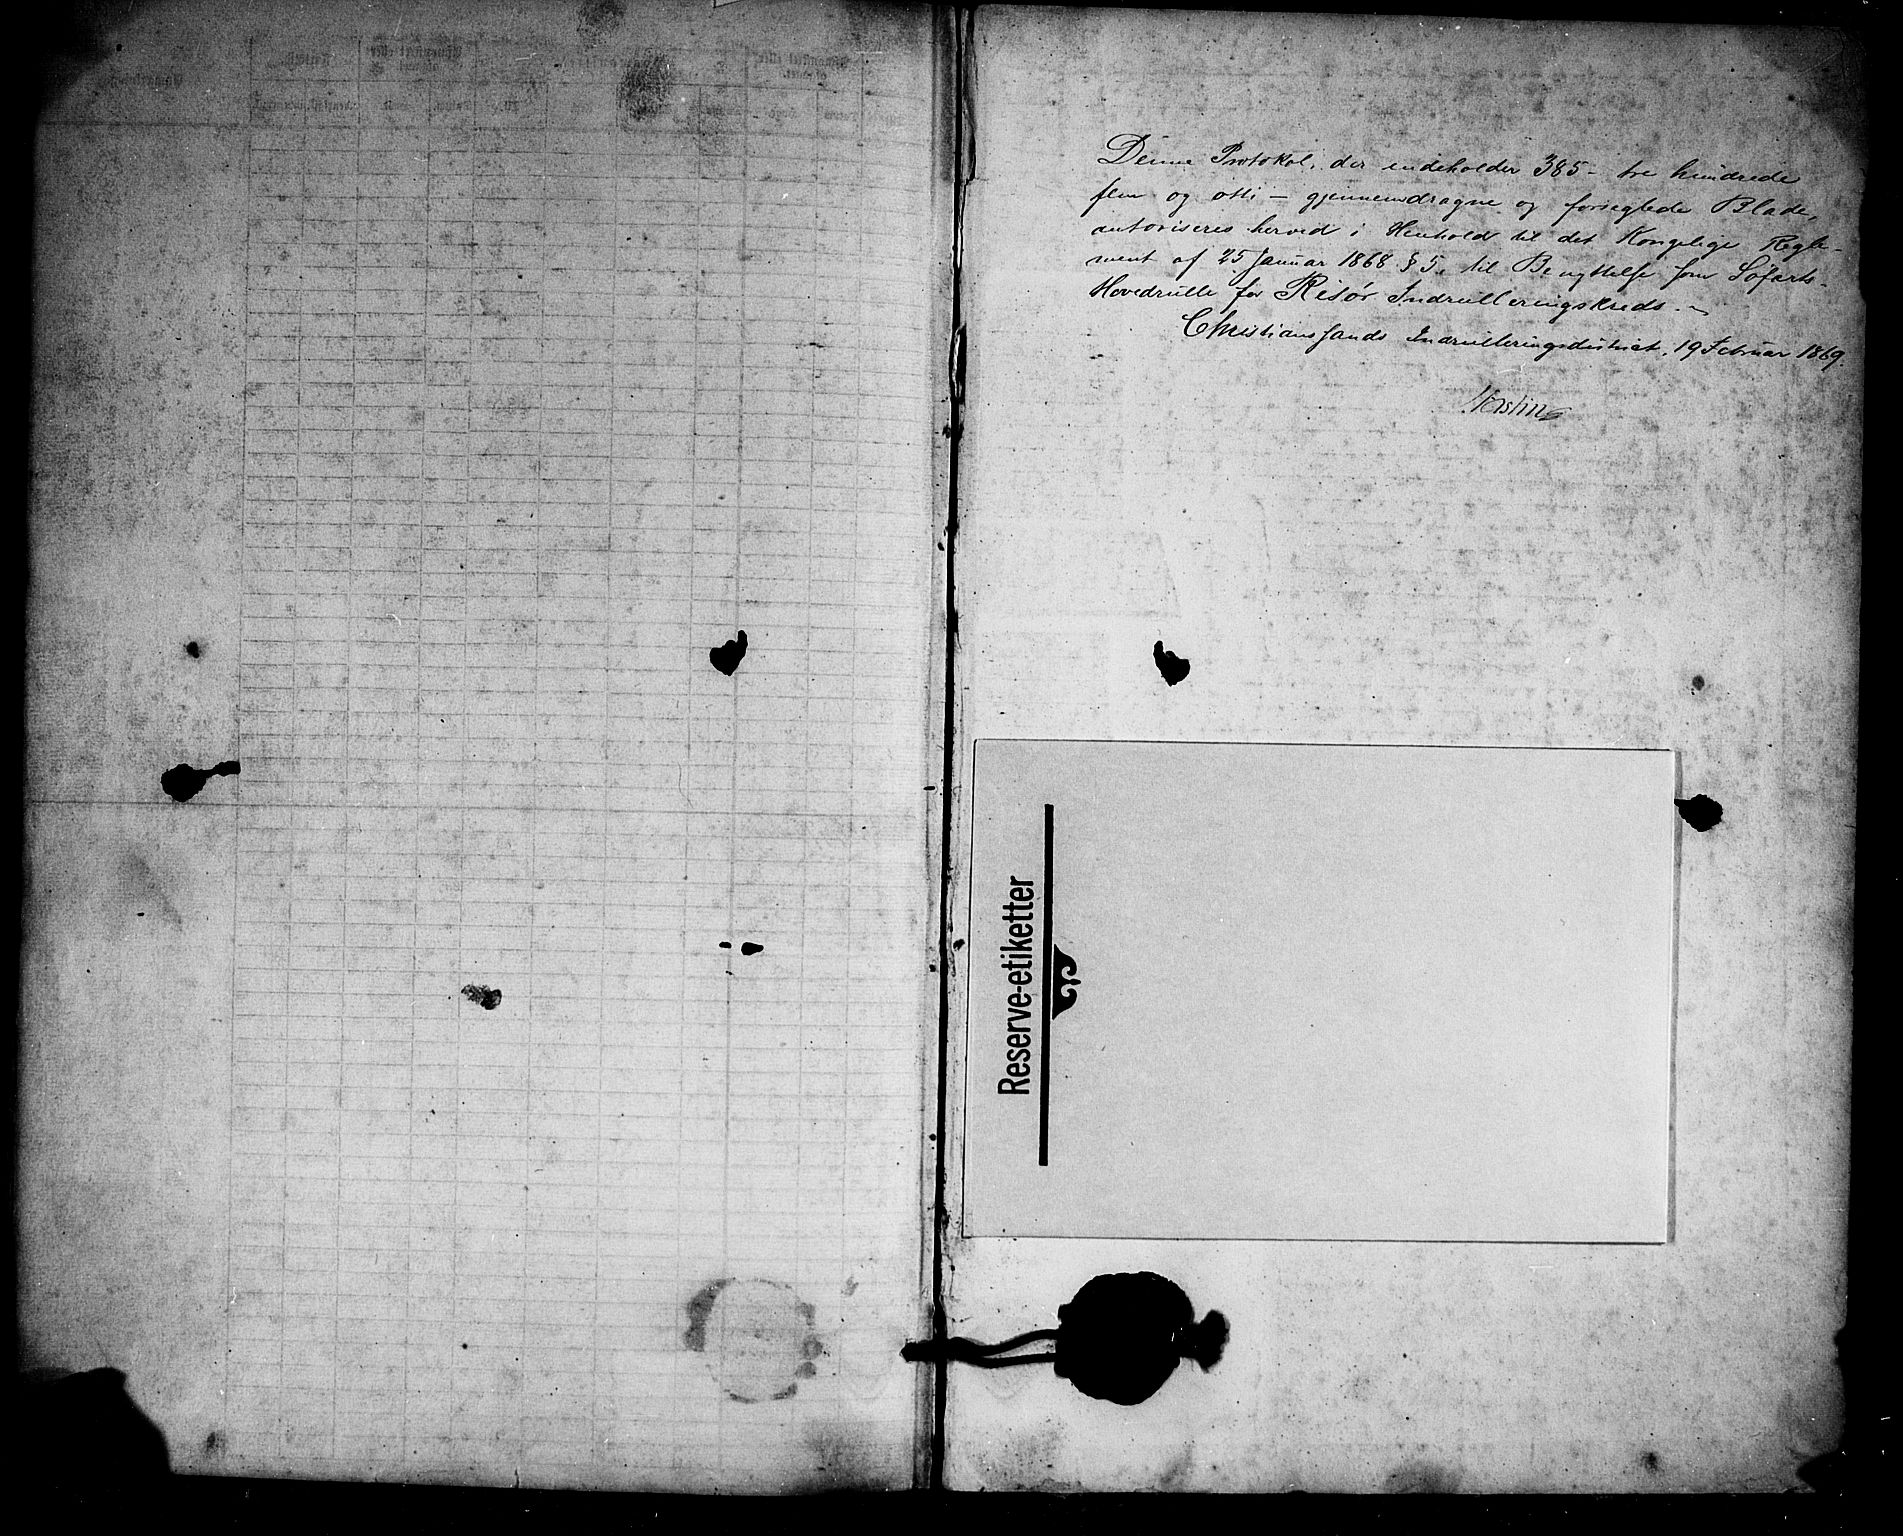 Denne Protokol, der indeholder 385 - tre hundrede
fem og otti - gjennemdragne og forseglede Blade,
autoriseres herved i Henhold til det Kongelige Regle-
ment af 25 Januar 1868 § 5, til Benyttelse som Søfarts-
Hovedrulle for Risør Indrulleringskreds. -
Christianssands Indrulleringsdistrict, 19 Februar 1869.
Reserve-etiketter